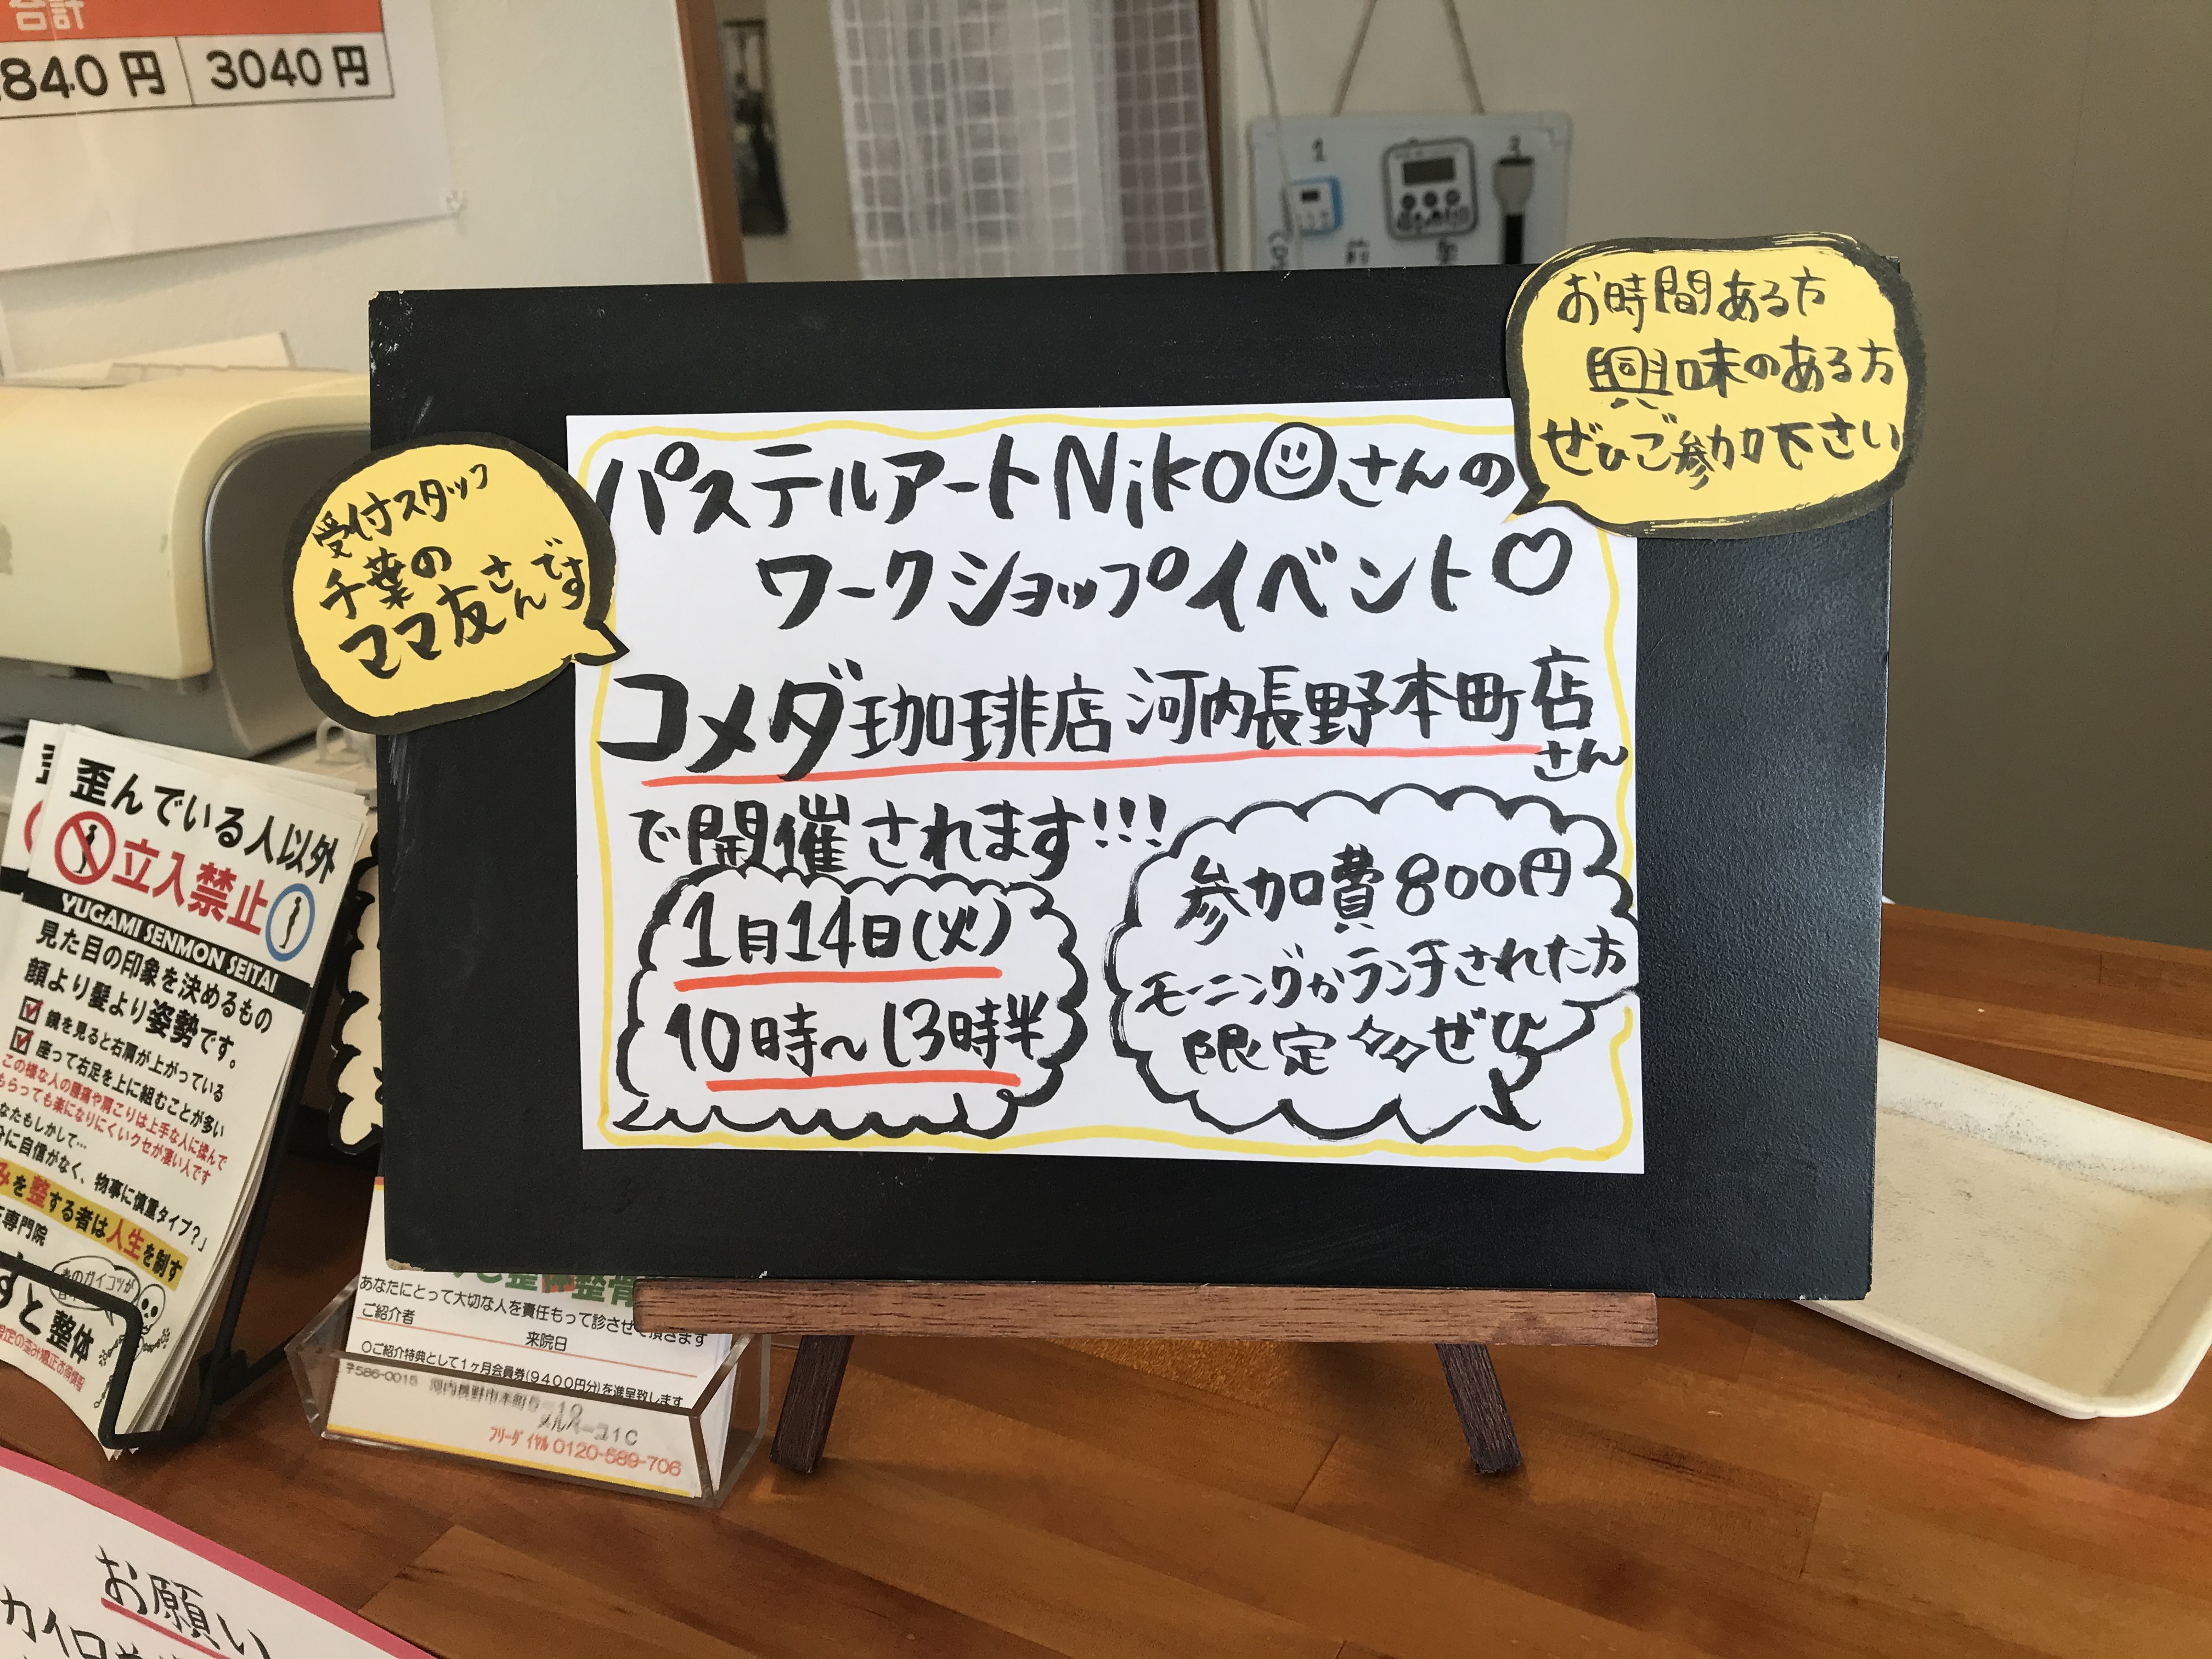 合計
840円 3040円
1 3
お時間ある方
興味のある方
ぜひご参加下さい
受付スタッフ
千葉の
ママ友さんです
パステルアートNikoさんの
ワークショップイベント♡
コメダ珈琲店 河内長野本町店
さん
で開催されます!!!
1月14日(火)
10時～13時半
参加費800円
モーニングかランチされた方
限定 ぜひ
歪んでいる人以外
立入禁止
YUGAMI SENMON SEITAI
見た目の印象を決めるもの
顔より髪より姿勢です。
鏡を見ると右肩が上がっている
座って右足を上に組むことが多い
この様な人の腰痛や肩こりは上手な人に揉んで
もらっても楽になりにくいクセが凄い人です
なたもしかして…
に自信がなく、物事に慎重タイプ?」
みを整する者は人生を制す
専門院
すと整体
整体整骨
あなたにとって大切な人を責任もって診させて頂きます
ご紹介者
来院日
○ご紹介特典として1ヶ月会員券(9400円分)を進呈致します
〒586-0015 河内長野市本町
フリーダイヤル 0120-589-706
お願い
カイロ